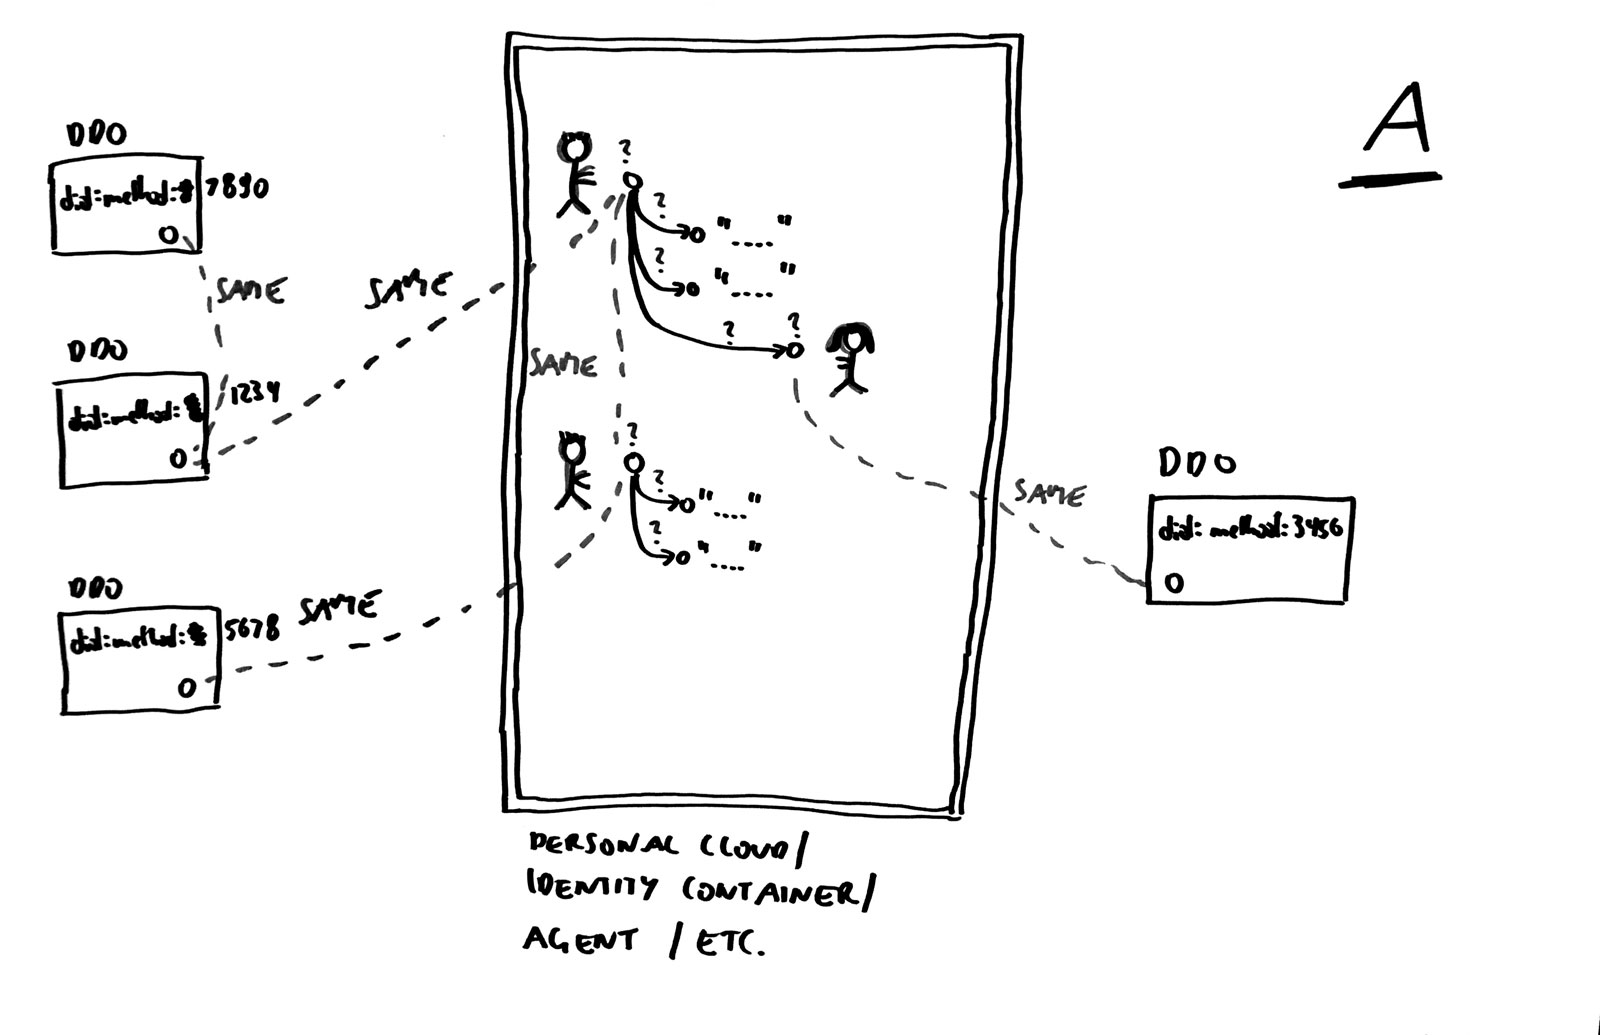 A
DDO
did:method:7890
SAME
SAME
DDO
did:method:1234
DDO
did:method:5678
SAME
?
?
"....."
?
"....."
?
?
SAME
?
?
"....."
?
"....."
SAME
DDO
did:method:3456
PERSONAL CLOUD/
IDENTITY CONTAINER/
AGENT / ETC.